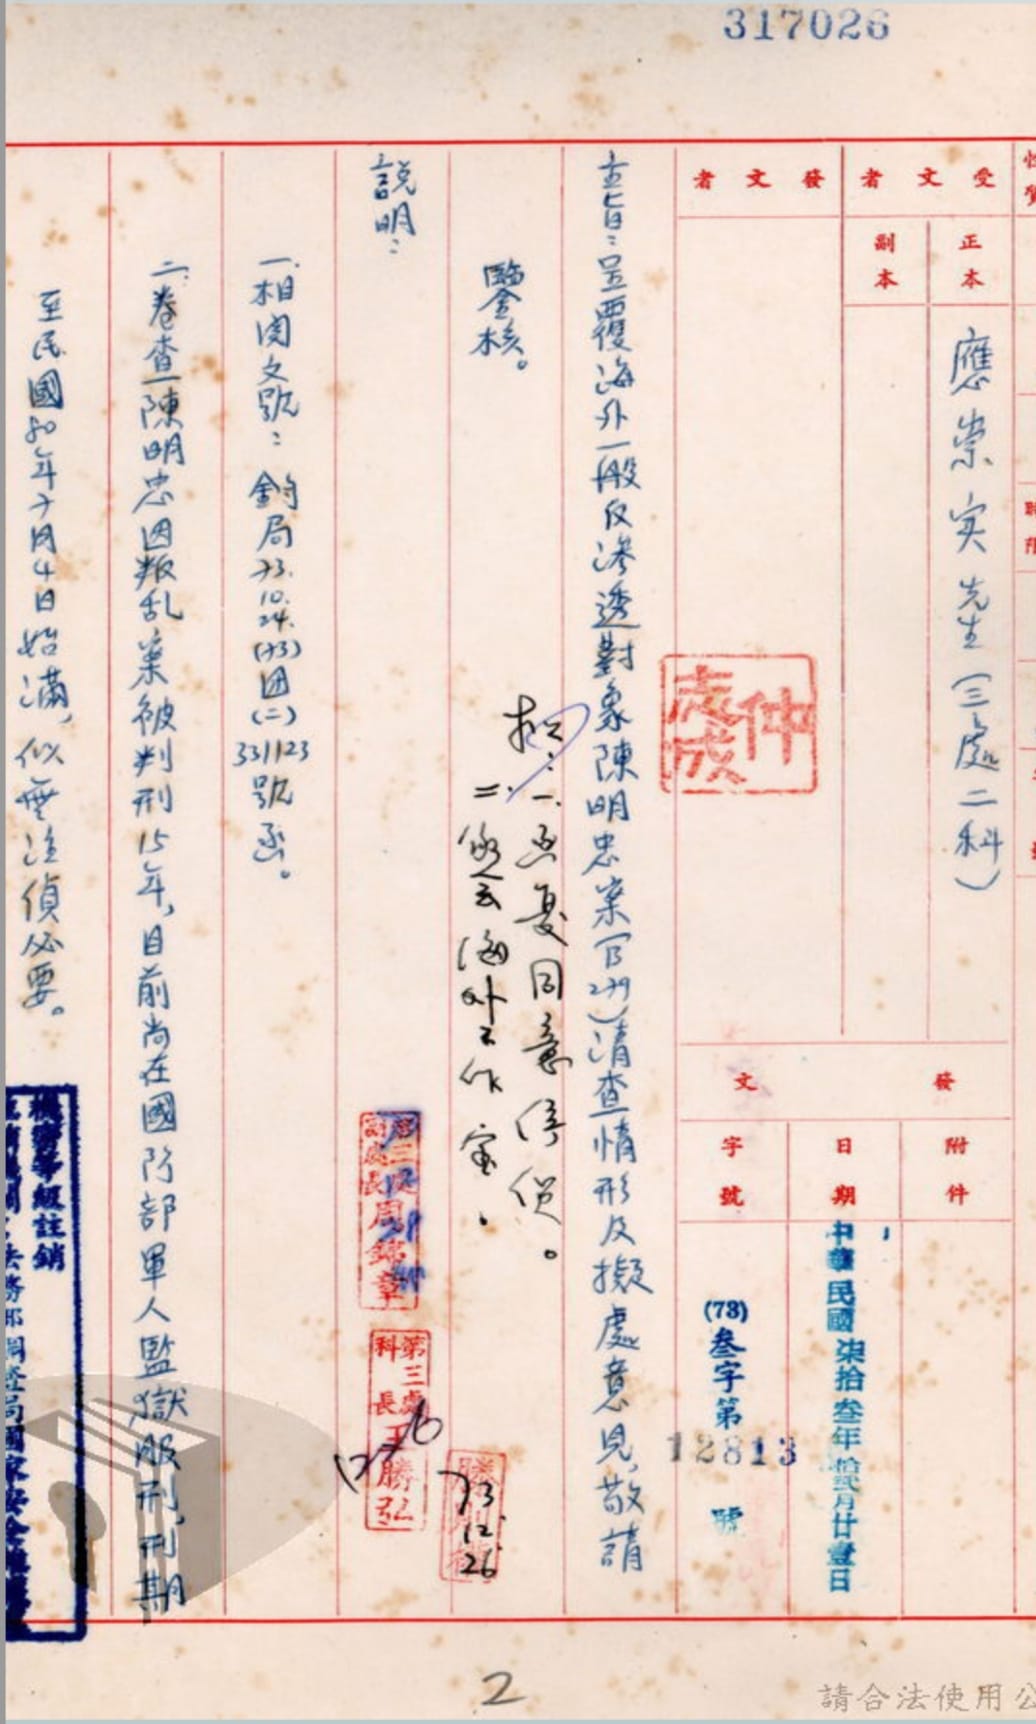 317026
受文者
正本
應崇实先生(三處二科)
副本
發文者
仲
志成
發文
附件
日期
中華民國柒拾叁年拾貳月廿壹日
字號
(73)叁字第12813號
主旨：呈覆海外一般反滲透對象陳明忠案(B279)清查情形及擬處意見,敬請
鑒核。
擬：一.函复同意停偵。
二.
海外工作室.
說明：
第三處副處長周錦章
第三處科長王勝弘
73.12.26
一.相関文號：鈞局73.10.24.(73)団(二)331123號函。
二.卷查陳明忠因叛乱案被判刑15年,目前尚在國防部軍人監獄服刑,刑期
至民國80年7月4日始滿,似無注偵必要。
機密等級註銷
2
請合法使用公